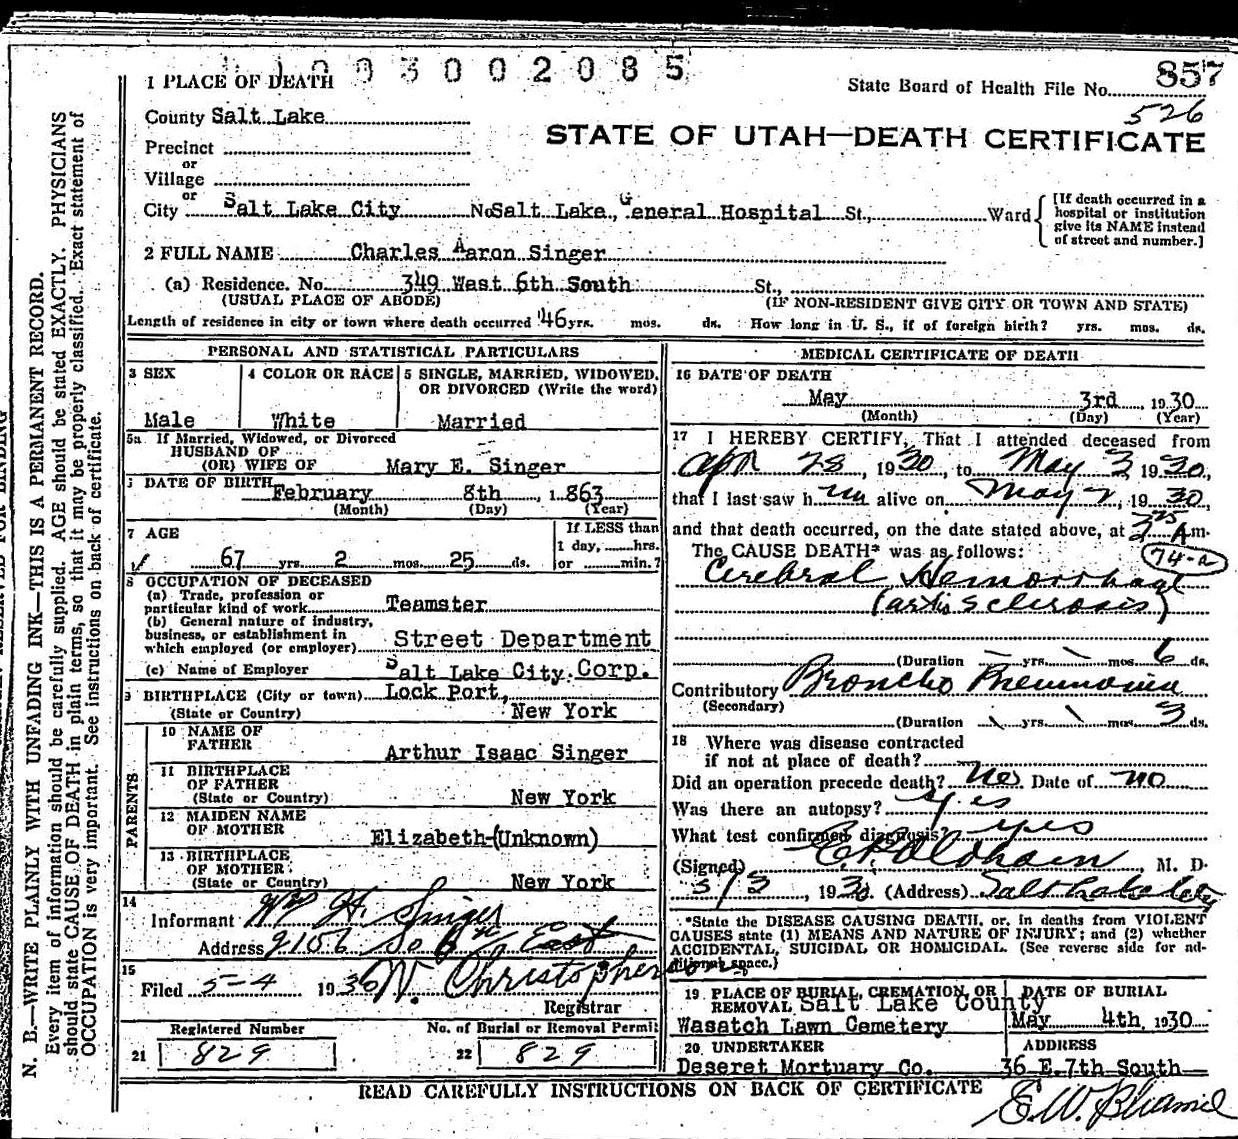 1003002085
857
1 PLACE OF DEATH
State Board of Health File No.
526
County Salt Lake
STATE OF UTAH—DEATH CERTIFICATE
Precinct
or
Village
or
City Salt Lake City No Salt Lake, General Hospital St., Ward
[If death occurred in a
hospital or institution
give its NAME instead
of street and number.]
2 FULL NAME Charles Aaron Singer
(a) Residence. No. 349 West 6th South St.,
(USUAL PLACE OF ABODE) (IF NON-RESIDENT GIVE CITY OR TOWN AND STATE)
Length of residence in city or town where death occurred 46 yrs. mos. ds. How long in U. S., if of foreign birth? yrs. mos. ds.
PERSONAL AND STATISTICAL PARTICULARS
3 SEX
Male
4 COLOR OR RACE
White
5 SINGLE, MARRIED, WIDOWED,
OR DIVORCED (Write the word)
Married
5a If Married, Widowed, or Divorced
HUSBAND OF
(OR) WIFE OF Mary E. Singer
DATE OF BIRTH
February 8th, 1863
(Month) (Day) (Year)
7 AGE
67 yrs. 2 mos. 25 ds.
If LESS than
1 day, hrs.
or min.?
8 OCCUPATION OF DECEASED
(a) Trade, profession or
particular kind of work Teamster
(b) General nature of industry,
business, or establishment in
which employed (or employer) Street Department
(c) Name of Employer Salt Lake City Corp.
9 BIRTHPLACE (City or town) Lock Port,
(State or Country) New York
PARENTS
10 NAME OF
FATHER Arthur Isaac Singer
11 BIRTHPLACE
OF FATHER
(State or Country) New York
12 MAIDEN NAME
OF MOTHER Elizabeth-(Unknown)
13 BIRTHPLACE
OF MOTHER
(State or Country) New York
14
Informant Wm H. Singer
Address 2156 So 8th East
15
Filed 5-4 1930
Registrar
Registered Number
21 829
No. of Burial or Removal Permit
22 829
MEDICAL CERTIFICATE OF DEATH
16 DATE OF DEATH
May 3rd, 1930
(Month) (Day) (Year)
17 I HEREBY CERTIFY, That I attended deceased from
Apr 28, 1930, to May 3, 1930,
that I last saw him alive on May 2, 1930,
and that death occurred, on the date stated above, at A.m.
The CAUSE DEATH* was as follows:
74-a
Cerebral Hemorrhage
(Duration yrs. mos. 6 ds.
Contributory Broncho Pneumonia
(Secondary)
(Duration yrs. mos. 3 ds.
18 Where was disease contracted
if not at place of death?
Did an operation precede death? Date of no
Was there an autopsy? yes
What test confirmed diagnosis? yes
(Signed) M. D.
5/3, 1930. (Address) Salt Lake City
*State the DISEASE CAUSING DEATH, or, in deaths from VIOLENT
CAUSES state (1) MEANS AND NATURE OF INJURY; and (2) whether
ACCIDENTAL, SUICIDAL OR HOMICIDAL. (See reverse side for ad-
ditional space.)
19 PLACE OF BURIAL, CREMATION, OR
REMOVAL Salt Lake County
Wasatch Lawn Cemetery
DATE OF BURIAL
May 4th, 1930
20 UNDERTAKER
Deseret Mortuary Co.
ADDRESS
36 E. 7th South
READ CAREFULLY INSTRUCTIONS ON BACK OF CERTIFICATE
N. B.—WRITE PLAINLY WITH UNFADING INK—THIS IS A PERMANENT RECORD.
Every item of information should be carefully supplied. AGE should be stated EXACTLY. PHYSICIANS
should state CAUSE OF DEATH in plain terms, so that it may be properly classified. Exact statement of
OCCUPATION is very important. See instructions on back of certificate.